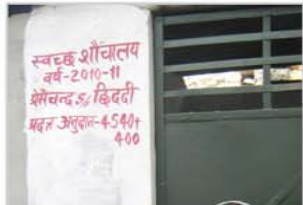 स्वच्छ शौचालय
वर्ष-2010-11
प्रेमचन्द S/o द्विददी
प्रदत्त अनुदान-4540+
400